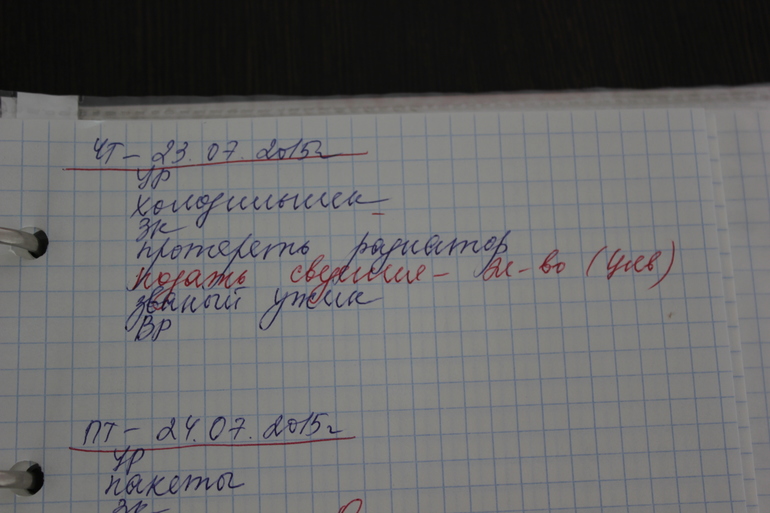 ЧТ - 23.07.2015г
УР
холодильник
ЗК
протереть радиатор
подать сведение - эл-во (
званый ужин
ВР
ПТ - 24.07.2015г
УР
пакеты
ЗК